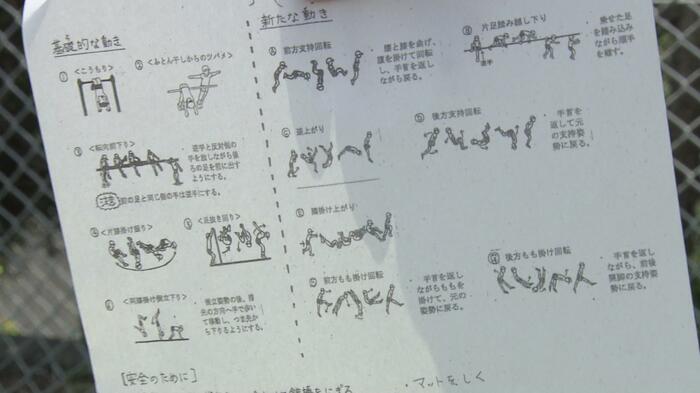 基礎的な動き
① <こうもり>
② <ふとん干しからのツバメ>
③ <転向前下り>
逆手と反対側の
手を放しながら後
ろの足を前に出す
ようにする。
注意 前の足と同じ側の手は逆手にする。
④ <片膝掛け振り>
⑤ <足抜き回り>
⑥ <両膝掛け倒立下り>
倒立姿勢の後、指
先の方向へ手で歩い
て移動し、つま先か
ら下りるようにする。
新たな動き
Ⓐ 前方支持回転
腰と膝を曲げ、
腹を掛けて回転
し、手首を返し
ながら戻る。
Ⓑ 片足踏み越し下り
逆手
乗せた足
を踏み込み
ながら順手
を離す。
Ⓒ 逆上がり
Ⓓ 後方支持回転
手首を
返して元
の支持姿
勢に戻る。
Ⓔ 膝掛け上がり
Ⓕ 前方もも掛け回転
手首を返し
ながらももを
掛けて、元の
姿勢に戻る。
Ⓖ 後方もも掛け回転
手首を返し
ながら、前後
開脚の支持姿
勢に戻る。
[安全のために]
・マットをしく